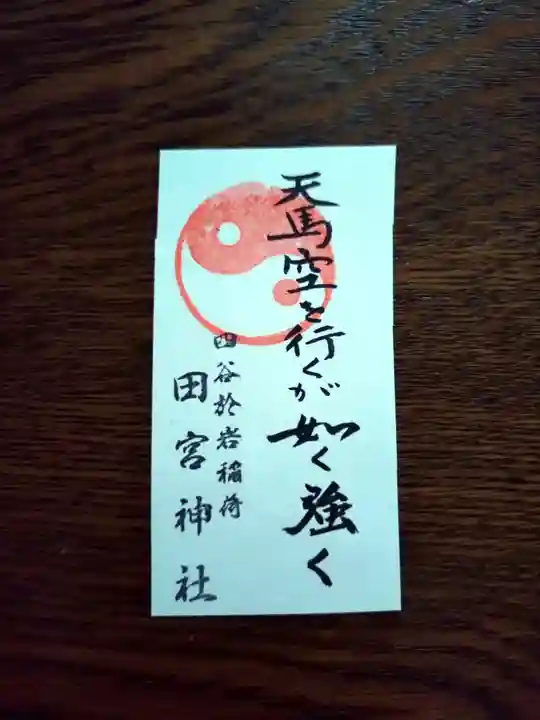 天馬空を行くが如く強く
四谷於岩稲荷
田宮神社